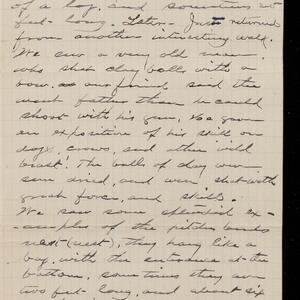 of a bag, and sometimes two
feet long. Later - Just returned
from another interesting walk.
We saw a very old man,
who shot clay balls with a
bow. as our friend said they
went father than he could
shoot with his gun. He gave
an expositive of his skill on
dogs, crows, and other wild
beasts! The balls of clay were
sun dried, and were shot with
great force, and skill.
We saw some splendid ex-
-amples of the pitcher birds
nest (nest), they hang like a
bag, with the entrance at the
bottom, sometimes they are
two feet long, and about six